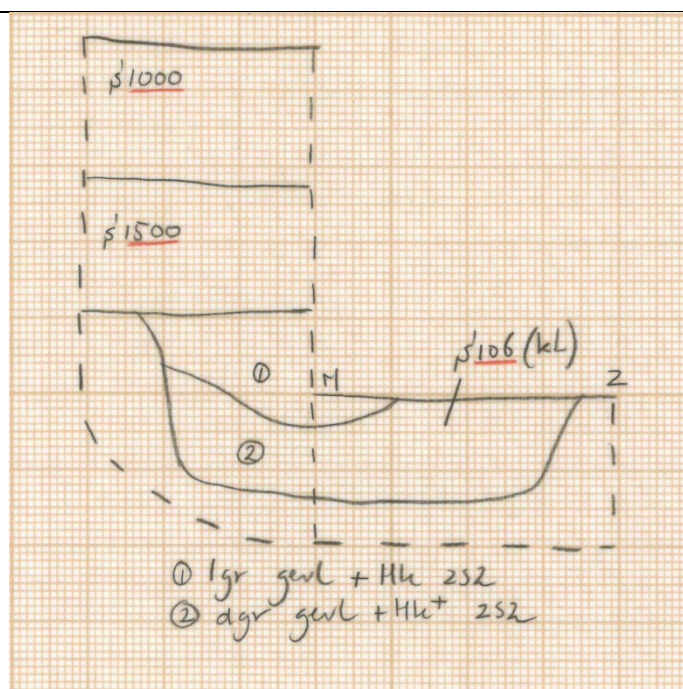 S1000
S1500
①
M
S106 (kL)
Z
②
① lgr gevl + Hk ZS2
② dgr gevl + Hk+ ZS2